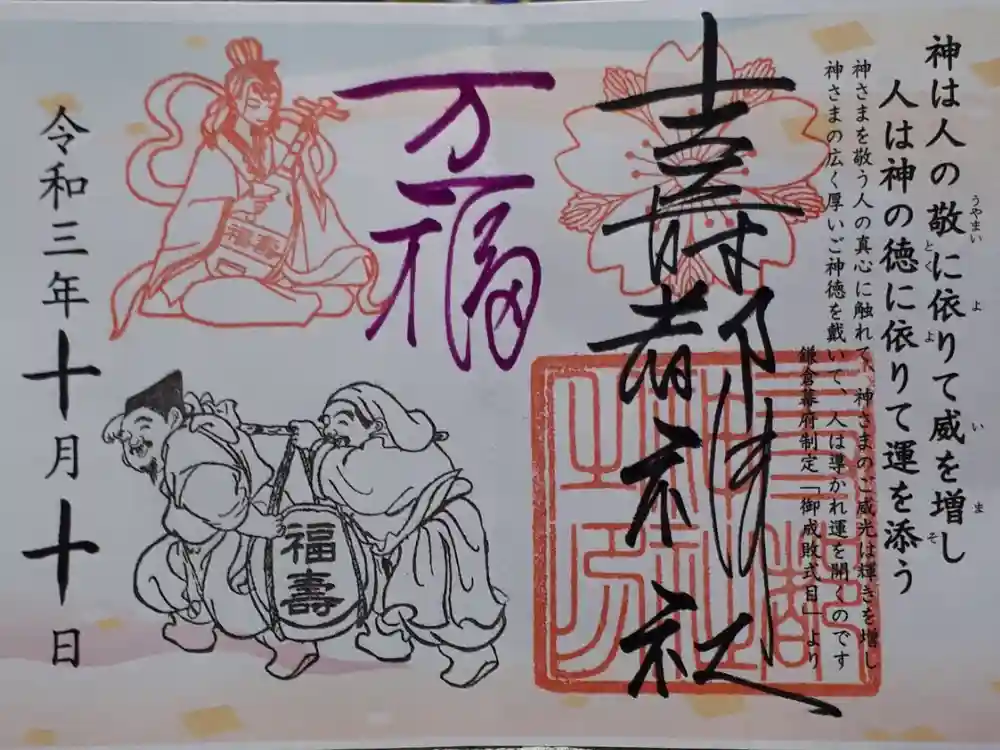 神は人の敬に依りて威を増し
うやまい よ い ま
人は神の徳に依りて運を添う
とく よ そ
神さまを敬う人の真心に触れて、神さまのご威光は輝きを増し
神さまの広く厚いご神徳を戴いて、人は導かれ運を開くのです
鎌倉幕府制定「御成敗式目」より
壽都神社
万福
福壽
福壽
令和三年十月十日